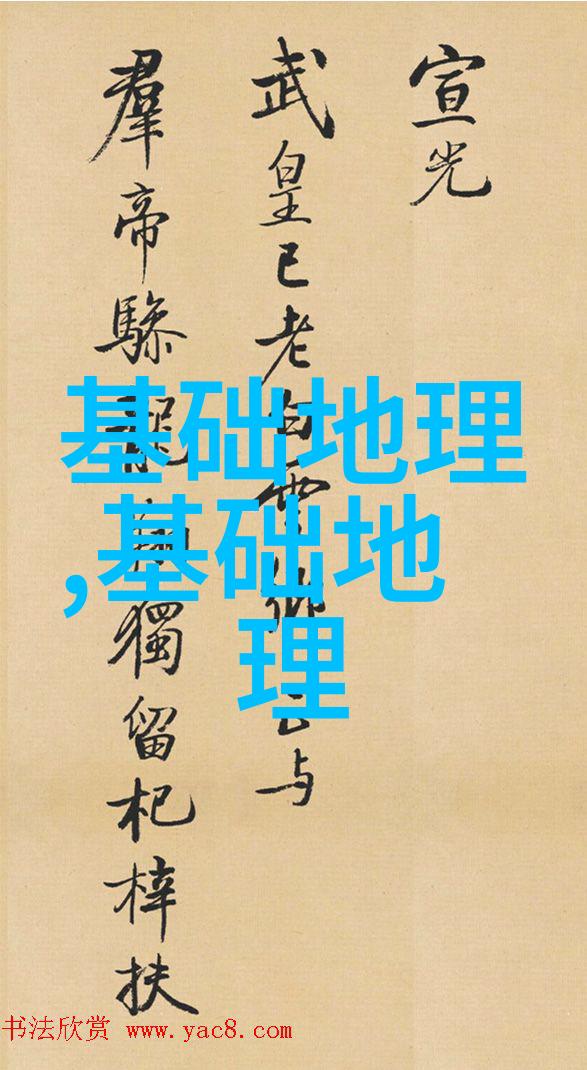 宣光
武皇已老白雲鄉与
羣帝驂龍翔獨留杞梓扶
基础地理
,基础地
理
书法欣赏 www.yac8.com